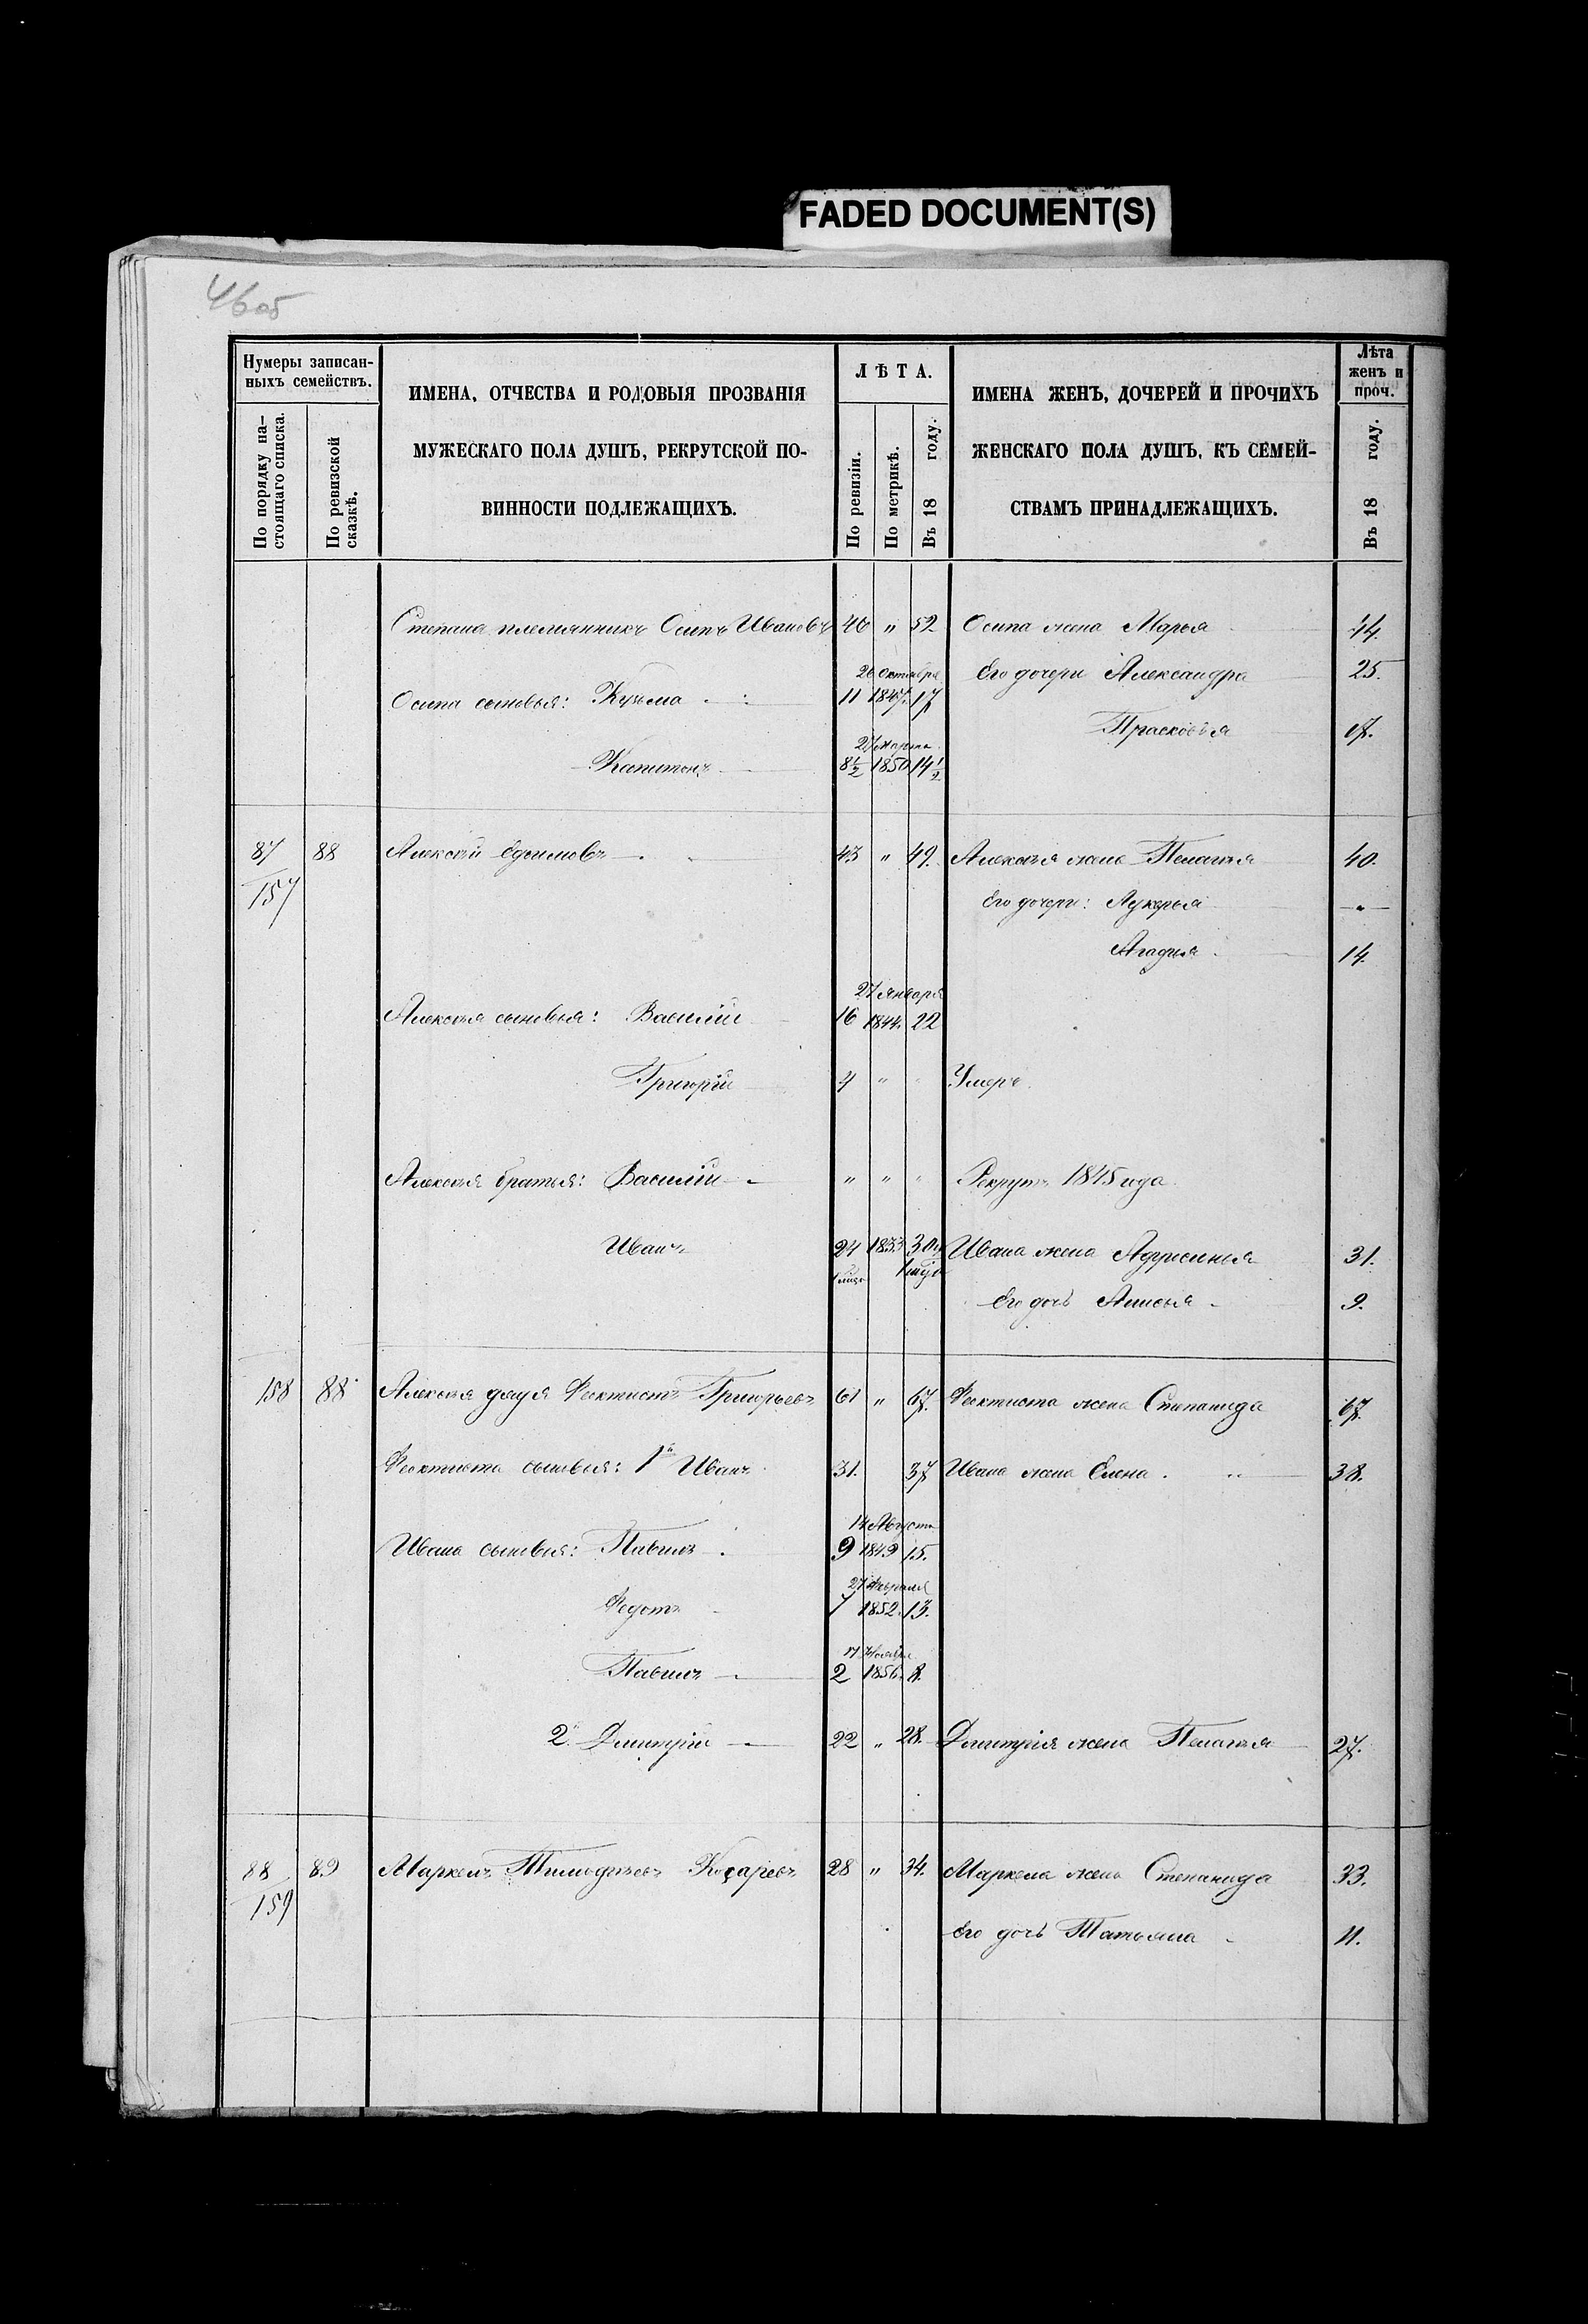 FADED DOCUMENT(S)
46об
Нумеры записан-
ныхъ семействъ.
По порядку на-
стоящаго списка.
По ревизской
сказкѣ.
ИМЕНА, ОТЧЕСТВА И РОДОВЫЯ ПРОЗВАНІЯ
МУЖЕСКАГО ПОЛА ДУШЪ, РЕКРУТСКОЙ ПО-
ВИННОСТИ ПОДЛЕЖАЩИХЪ.
ЛѢТА.
По ревизіи.
По метрикѣ.
Въ 18 году.
ИМЕНА ЖЕНЪ, ДОЧЕРЕЙ И ПРОЧИХЪ
ЖЕНСКАГО ПОЛА ДУШЪ, КЪ СЕМЕЙ-
СТВАМЪ ПРИНАДЛЕЖАЩИХЪ.
Лѣта
женъ и
проч.
Въ 18 году.
Степана племянникъ Осипъ Ивановъ 46 " 52 Осипа жена Марья 44.
Его дочери Александра 25.
26 Октября
Осипа сыновья: Кузьма 11 1847. 17
Прасковья 17.
27 марта
Капитонъ 8½ 1850 14½
87 88 Алексѣй Ефимовъ 43 " 49. Алексѣя жена Пелагѣя 40.
157
Его дочери: Лукерья "
Агафья 14.
27 Января
Алексѣя сыновья: Василій 16 1844. 22
Григорій 4 " " Умеръ.
Алексѣя братья: Василій " " " Рекрутъ 1845 года
Иванъ 24 1833 30 Ивана жена 31.
Его дочь Анисья 9.
158 88 Алексѣя дядя Феоктистъ Григорьевъ 61 " 67. Феоктиста жена Степанида 67.
Феоктиста сыновья: 1й Иванъ 31. 37 Ивана жена Елена 38.
14 Августа
Ивана сыновья: Павилъ 9 1849 15.
27 Февраля
Федотъ 7 1852. 13.
17 Ноября
Павилъ 2 1856. 8.
2й Дмитрій 22 " 28. Дмитрія жена Пелагѣя 27.
88 89 Маркелъ Тимофѣевъ Косаревъ 28 " 34. Маркела жена Степанида 33.
159
Его дочь Татьяна 11.